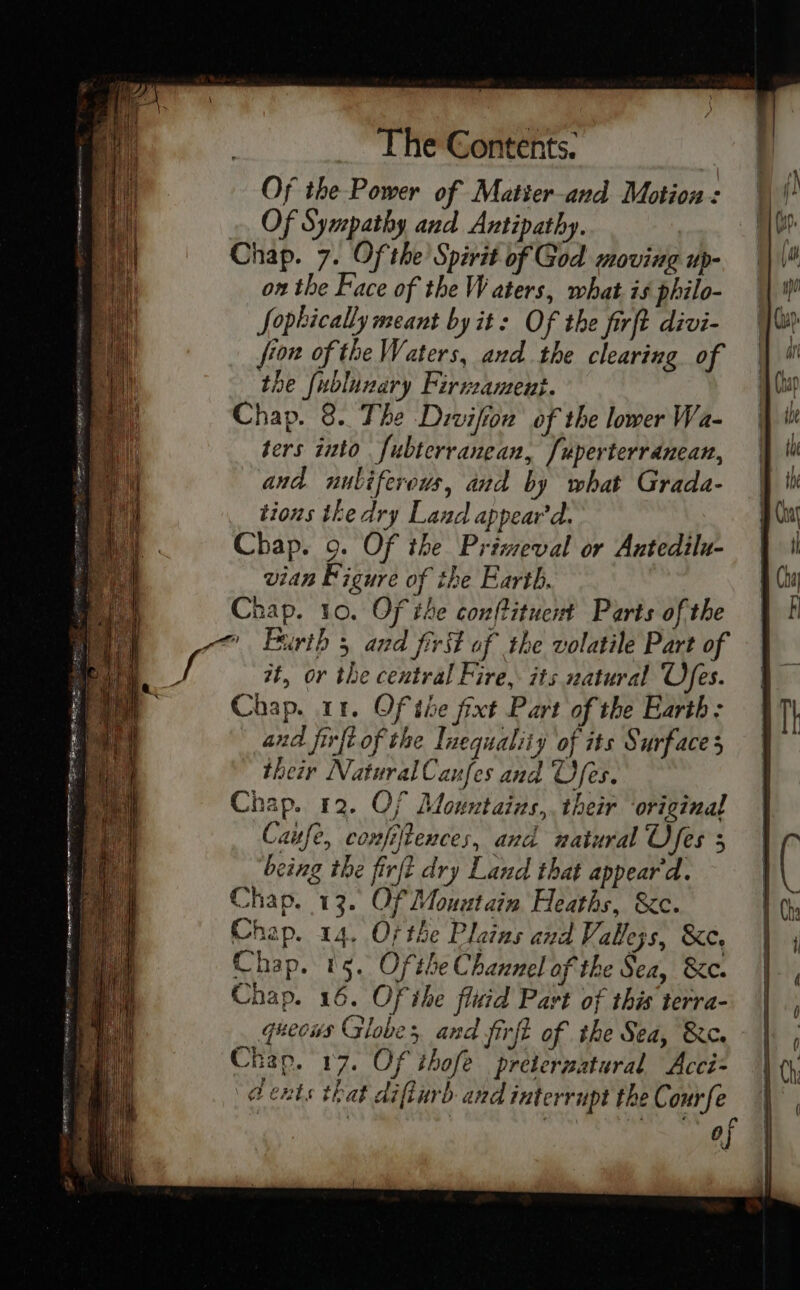 The Contents.
Of the Power of Matter and Motion :
Of Sympathy and Antipathy.
Chap. 7. Of the Spirit of God moving up-
on the Face of the Waters, what is philo-
ſophically meant by it : Of the firſt divi-
ſion of the Waters, and the clearing of
the ſublunary Firmament.
Chap. 8. The Diviſion of the lower Wa-
ters into ſubterranean, ſuperterranean,
and nubiferous, and by what Grada-
tions the dry Land appear'd.
Chap. 9. Of the Primeval or Antedilu-
vian Figure of the Earth.
Chap. 10. Of the conſtituent Parts of the
Earth ; and firſt of the volatile Part of
it, or the central Fire, its natural Uſes.
Chap. 11. Of the fixt Part of the Earth :
and firſt of the Inequality of its Surface ;
their Natural Cauſes and Uſes.
Chap. 12. Of Mountains, their original
Cauſe, conſiſtences, and natural Uſes ;
being the firſt dry Land that appear'd.
Chap. 13. Of Mountain Heaths, &c.
Chap. 14. Of the Plains and Valleys, &c.
Chap. 15. Of the Channel of the Sea, &c.
Chap. 16. Of the fluid Part of this terra-
queous Globe ; and firſt of the Sea, &c.
Chap. 17. Of thoſe preternatural Acci-
dents that diſturb and interrupt the Courſe
of